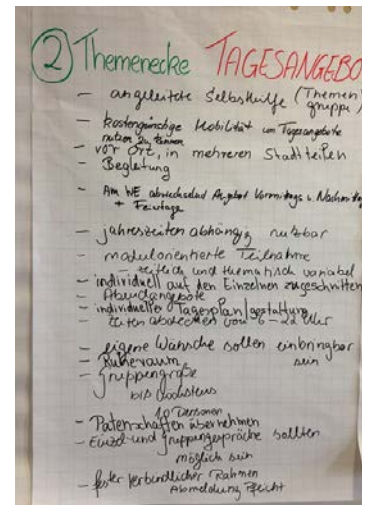 ② Themenecke TAGESANGEBO
- angeleitete Selbsthilfe (Themen
gruppe)
- kostengünstige Mobilität um Tagesangebote
nutzen zu können
- vor Ort, in mehreren Stadtteilen
- Begleitung
- Am WE abwechselnd Angebot Vormittags u. Nachmittag
+ Feiertage
- jahreszeiten abhängig nutzbar
- modulorientierte Teilnahme
- zeitlich und thematisch variabel
- individuell auf den Einzelnen zugeschnitten
- Abendangebote
- individueller Tagesplan/gestaltung
- Zeiten abdecken von 6-22 Uhr
- eigene Wünsche sollen einbringbar
sein
- Ruheraum
- Gruppengröße
bis höchstens
10 Personen
- Patenschaften übernehmen
- Einzel- und Gruppengespräche sollten
möglich sein
- fester verbindlicher Rahmen
Abmeldung Pflicht